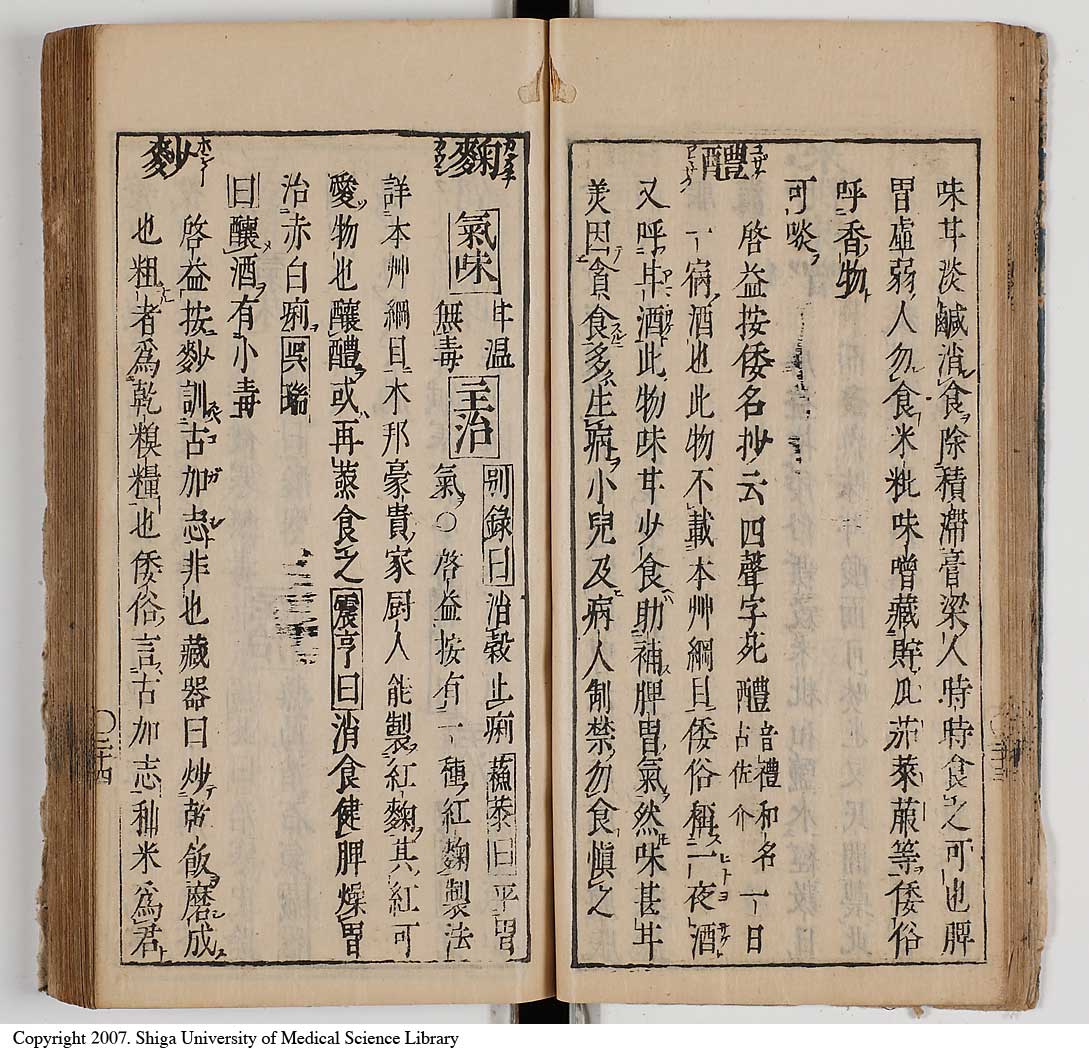 味甘淡鹹消食除積滯膏梁人時時食之可也脾
胃虛弱人勿食米粃味噌藏貯瓜茄萊菔等倭俗
呼香物
可啖
醴
啓益按倭名抄云四聲字苑醴音禮和名古佐介一日
一宿酒也此物不載本艸綱目倭俗稱一夜酒
又呼甘酒此物味甘少食助補脾胃氣然味甚甘
美因貪食多生病小兒及病人制禁勿食愼之
三十三
麴
氣味甘温無毒主治別錄曰消穀止痢蘇恭曰平胃
氣○啓益按有一種紅麴製法
詳本艸綱目本邦豪貴家厨人能製紅麴其紅可
愛物也釀醴或再蒸食之震亨曰消食健脾燥胃
治赤白痢吳瑞
曰釀酒有小毒
麨
啓益按麨訓古加志非也藏器曰炒乾飯磨成
也粗者爲乾糗糧也倭俗言古加志秈米爲君
○三十四
Copyright 2007. Shiga University of Medical Science Library